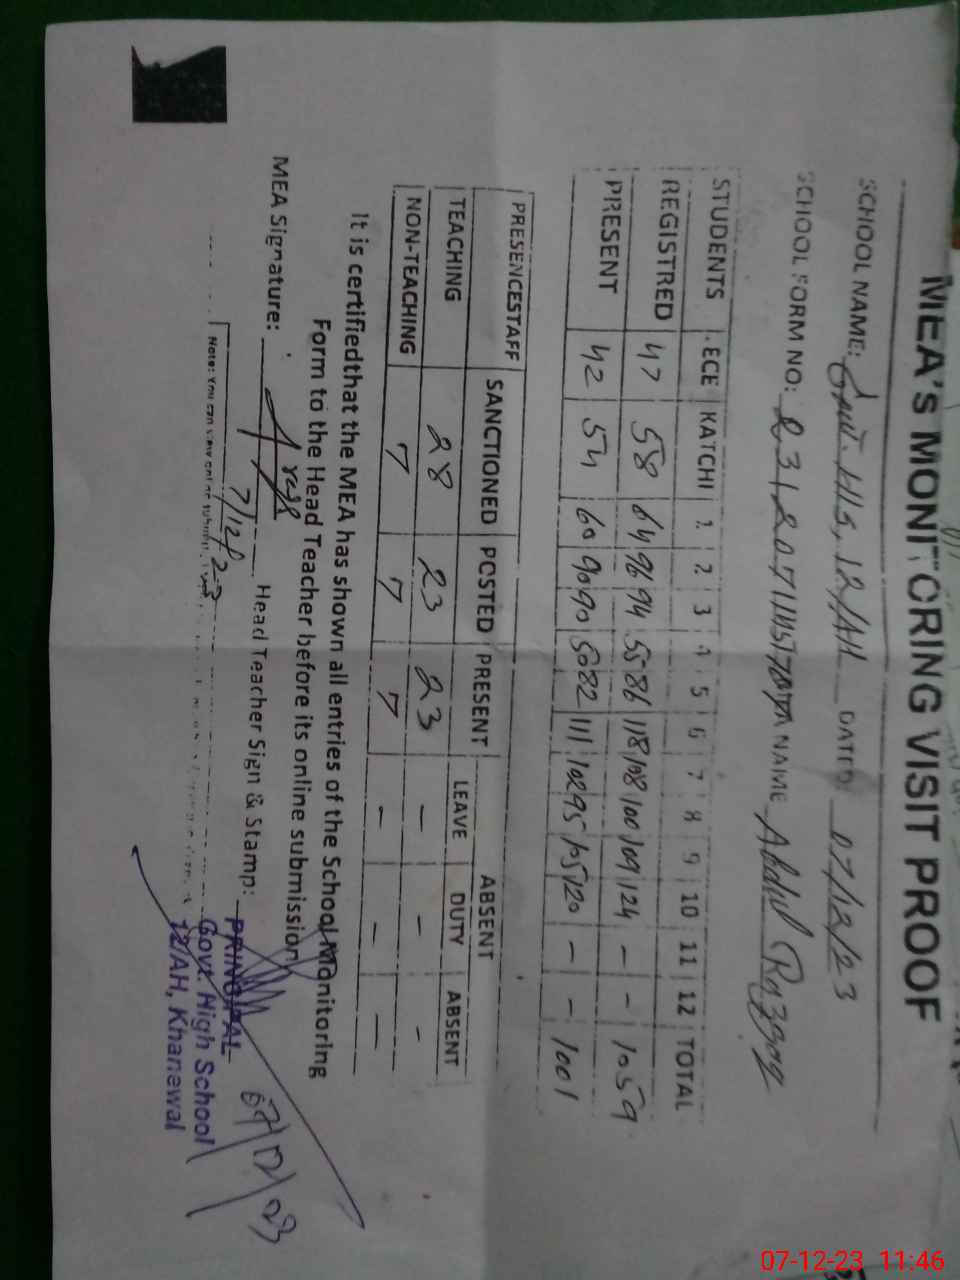 MEA'S MONITORING VISIT PROOF
SCHOOL NAME: Govt. H/S, 12/AH DATED 07/12/23
SCHOOL FORM NO: NAME Abdul Razzaq
STUDENTS ECE KATCHI 1 2 3 4 5 6 7 8 9 10 11 12 TOTAL
REGISTRED 47 58 64 96 94 55 86 118 108 100 109 124 - - 1059
PRESENT 42 54 60 90 90 50 82 111 102 95 105 120 - - 1001
PRESENCESTAFF SANCTIONED POSTED PRESENT ABSENT
LEAVE DUTY ABSENT
TEACHING 28 23 23 - - -
NON-TEACHING 7 7 7 - - -
It is certifiedthat the MEA has shown all entries of the School Monitoring
Form to the Head Teacher before its online submission
MEA Signature: Head Teacher Sign & Stamp:
7/12/23
PRINCIPAL
Govt. High School
12/AH, Khanewal
07/12/23
Note: You can view online
07-12-23 11:46